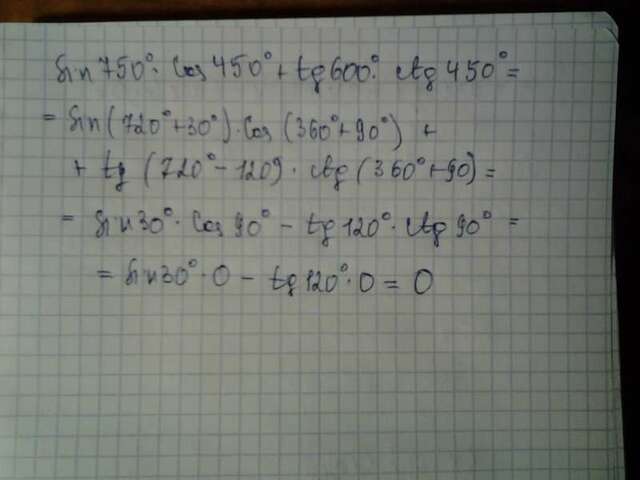 sin 750° · cos 450° + tg 600° · ctg 450° =
= sin (720° + 30°) · cos (360° + 90°) +
+ tg (720° - 120°) · ctg (360° + 90) =
= sin 30° · cos 90° - tg 120° · ctg 90° =
= sin 30° · 0 - tg 120° · 0 = 0